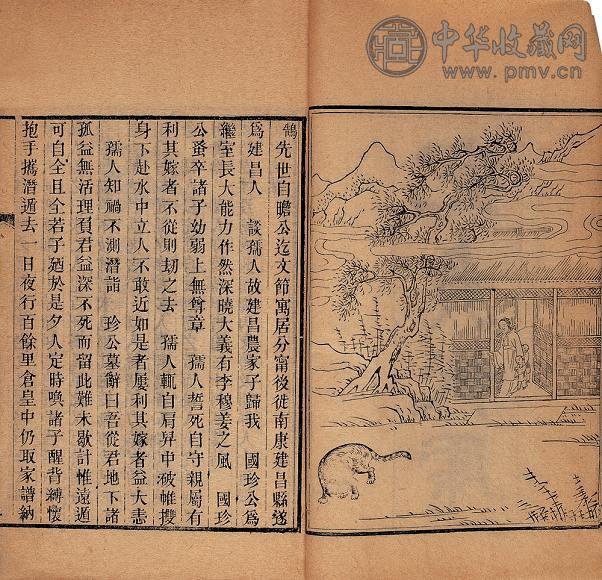 中华收藏网
www.pmv.cn
鵠先世自瞻公迄文節寓居分甯後徙南康建昌縣遂
爲建昌人 談孺人故建昌農家子歸我 國珍公爲
繼室長大能力作然深曉大義有李穆姜之風 國珍
公蚤卒諸子幼弱上無尊章 孺人誓死自守親屬有
利其嫁者不從則刼之去 孺人輒自肩舁中破帷
身下赴水中立人不敢近如是者屢利其嫁者益大恚
孺人知禍不測潛詣 珍公墓辭曰吾從君地下諸
孤益無活理負君益深不死而留此難未歇計惟遠遁
可自全且全若子廼於是夕人定時喚諸子醒背縛懷
抱手攜潛遁去一日夜行百餘里倉皇中仍取家譜納